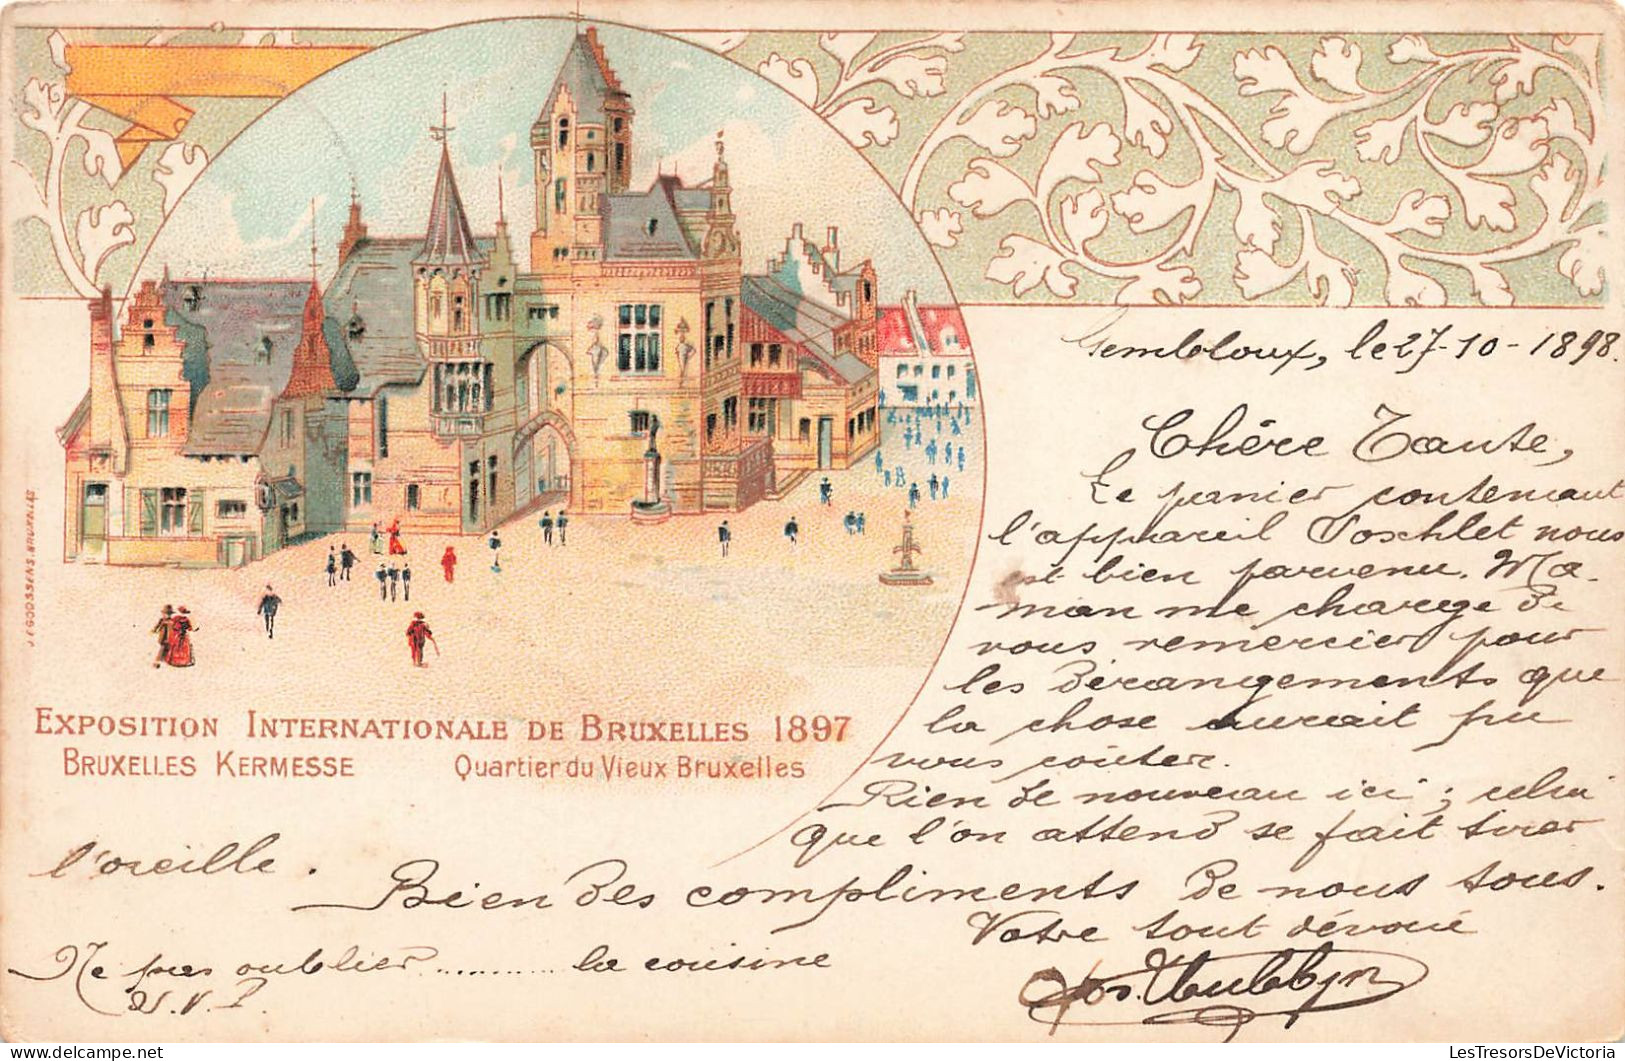 EXPOSITION INTERNATIONALE DE BRUXELLES 1897
BRUXELLES KERMESSE Quartier du Vieux Bruxelles
J.F. GOOSSENS. BRUXELLES
Gembloux, le 27-10-1898.
Chère Tante,
Le panier contenant
l'appareil Soxhlet nous
est bien parvenu. Ma-
man me charge de
vous remercier pour
les dérangements que
la chose aurait pu
vous coûter.
Rien de nouveau ici ; celui
que l'on attend se fait tirer
l'oreille.
Bien des compliments de nous tous.
Votre tout dévoué
Jos.
Ne pas oublier .......... la cousine
S.V.P.
LesTresorsDeVictoria